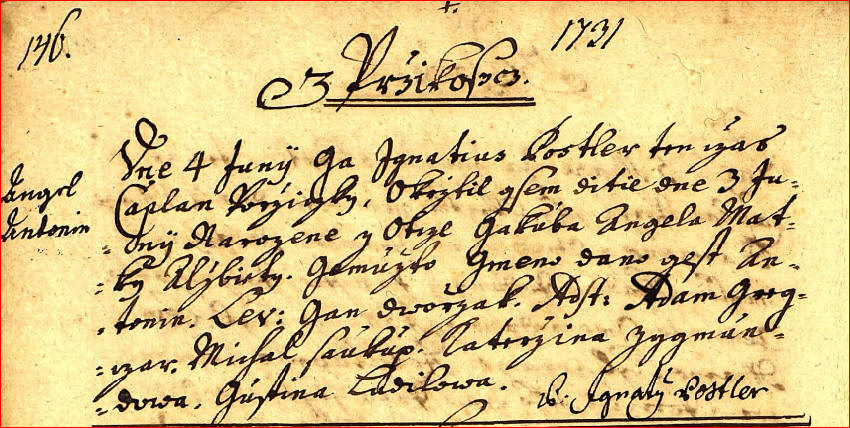 146.
1731
Z Przikosicz.
Angel
Antonin
Dne 4 Junij Ga Ignatius Postler ten czas
Caplan Porziczky, Okrztil gsem ditie dne 3 Ju-
-nij Narozene z Otcze Gakuba Angela Mat-
-ky Alzbiety. Gemuzto Gmeno dano gest An-
-tonin. Lev: Gan Dworzak. Adst: Adam Greg-
-czar. Michal Saukup. Katerzina Zygmun-
-dowa. Gustina Ludilowa.
P. Ignatij Postler